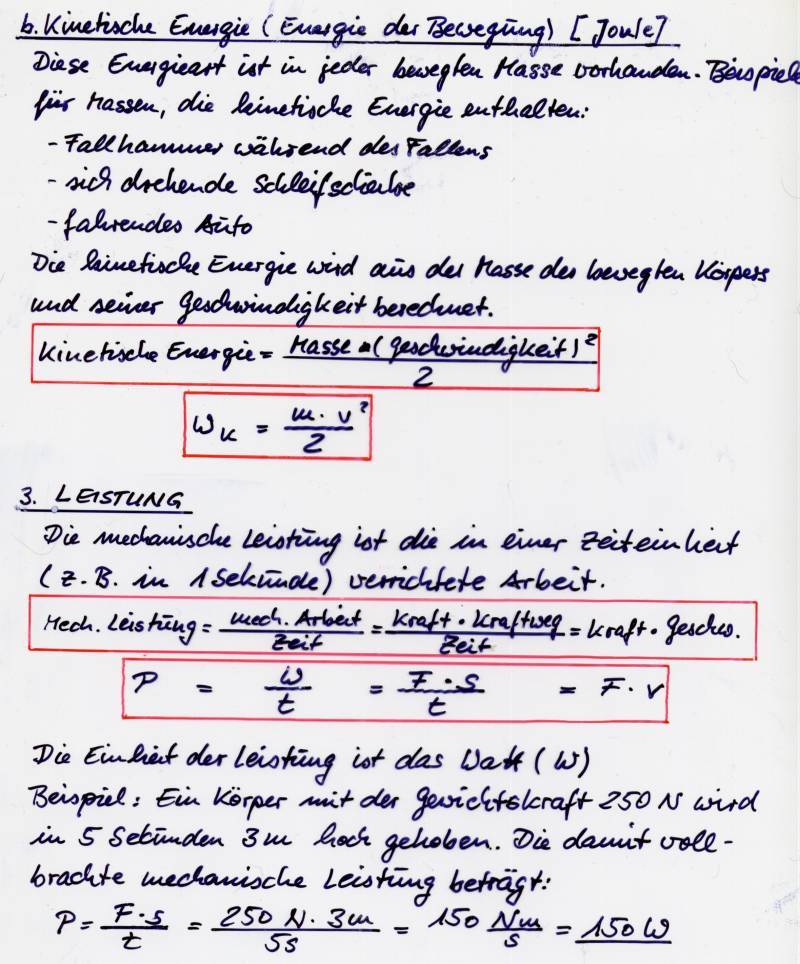 b. Kinetische Energie (Energie der Bewegung) [Joule]
Diese Energieart ist in jeder bewegten Masse vorhanden. Beispiele
für Massen, die kinetische Energie enthalten:
- Fallhammer während des Fallens
- sich drehende Schleifscheibe
- fahrendes Auto
Die kinetische Energie wird aus der Masse des bewegten Körpers
und seiner Geschwindigkeit berechnet.
Kinetische Energie = Masse · (Geschwindigkeit)² / 2
W_K = m · v² / 2
3. LEISTUNG
Die mechanische Leistung ist die in einer Zeiteinheit
(z.B. in 1 Sekunde) verrichtete Arbeit.
Mech. Leistung = mech. Arbeit / Zeit = Kraft · Kraftweg / Zeit = Kraft · Geschw.
P = W / t = F · s / t = F · v
Die Einheit der Leistung ist das Watt (W)
Beispiel: Ein Körper mit der Gewichtskraft 250 N wird
in 5 Sekunden 3 m hoch gehoben. Die damit voll-
brachte mechanische Leistung beträgt:
P = F · s / t = 250 N · 3m / 5s = 150 Nm / s = 150 W